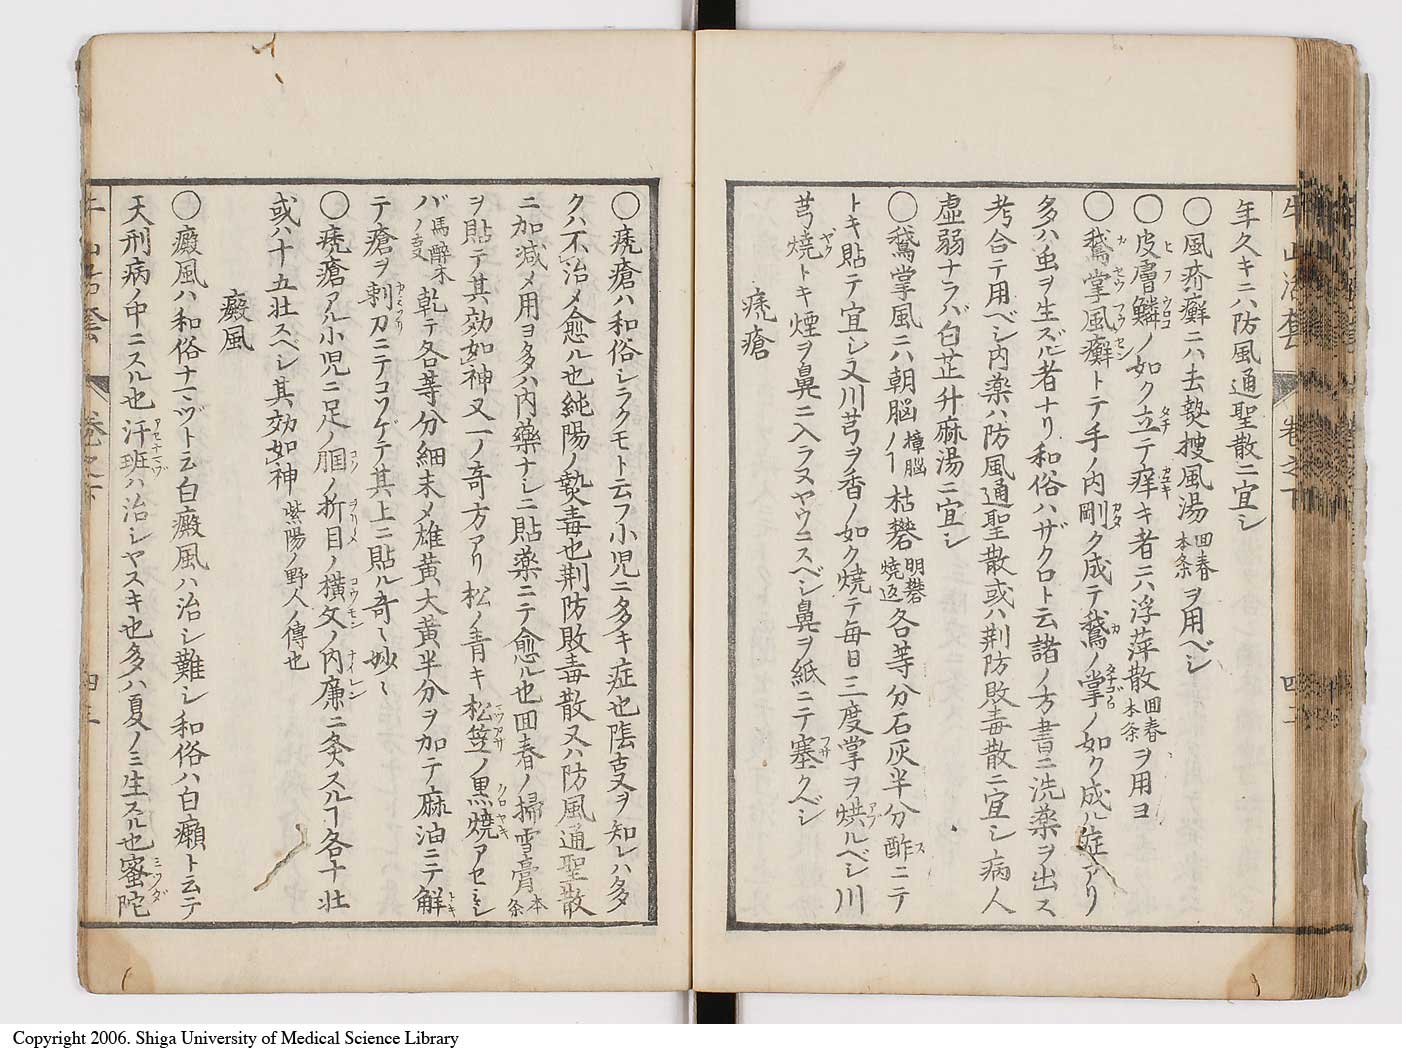 年久キニハ防風通聖散ニ宜シ
〇風疥癬ニハ去熱搜風湯回春本条ヲ用ベシ
〇皮膚鱗ノ如ク立テ痒キ者ニハ浮萍散回春本条ヲ用ヨ
〇鵞掌風癬トテ手ノ内剛ク成テ鵞ノ掌ノ如ク成ル症アリ
多ハ虫ヲ生ズル者ナリ和俗ハザクロト云諸ノ方書ニ洗薬ヲ出ス
考合テ用ベシ内薬ハ防風通聖散或ハ荆防敗毒散ニ宜シ病人
虚弱ナラバ白芷升麻湯ニ宜シ
〇鵞掌風ニハ朝脳ノヿ樟脳枯礬明礬焼返各等分石灰半分酢ニテ
トキ貼テ宜シ又川芎ヲ香ノ如ク焼テ毎日三度掌ヲ烘ルベシ川
芎焼トキ煙ヲ鼻ニ入ラヌヤウニスベシ鼻ヲ紙ニテ塞クベシ
禿瘡
牛山活套 卷之下 四二
〇禿瘡ハ和俗シラクモト云フ小児ニ多キ症也陰亙ヲ知レハ多
クハ不治メ愈ル也純陽ノ熱毒也荆防敗毒散又ハ防風通聖散
ニ加減メ用ヨタハ内藥ナシニ貼薬ニテ愈ル也回春ノ掃雪膏本条
ヲ貼テ其効如神又一ノ奇方アリ松ノ青キ松笠ノ黒焼アセミシ
バノ亙馬醉木乾テ各等分細末メ雄黄大黄半分ヲ加テ麻油ニテ解
テ瘡ヲ剃刀ニテコソゲテ其上ニ貼ル奇〻妙〻
〇禿瘡アル小児ニ足ノ膕ノ折目ノ横文ノ内廉ニ灸スルヿ各十壮
或ハ十五壮スベシ其効如神紫陽ノ野人ノ傳也
癜風
〇癜風ハ和俗ナマヅト云白癜風ハ治シ難シ和俗ハ白癩ト云テ
天刑病ノ中ニスル也汗班ハ治シヤスキ也多ハ夏ノミ生スル也蜜陀
卷之下 四三
Copyright 2006. Shiga University of Medical Science Library